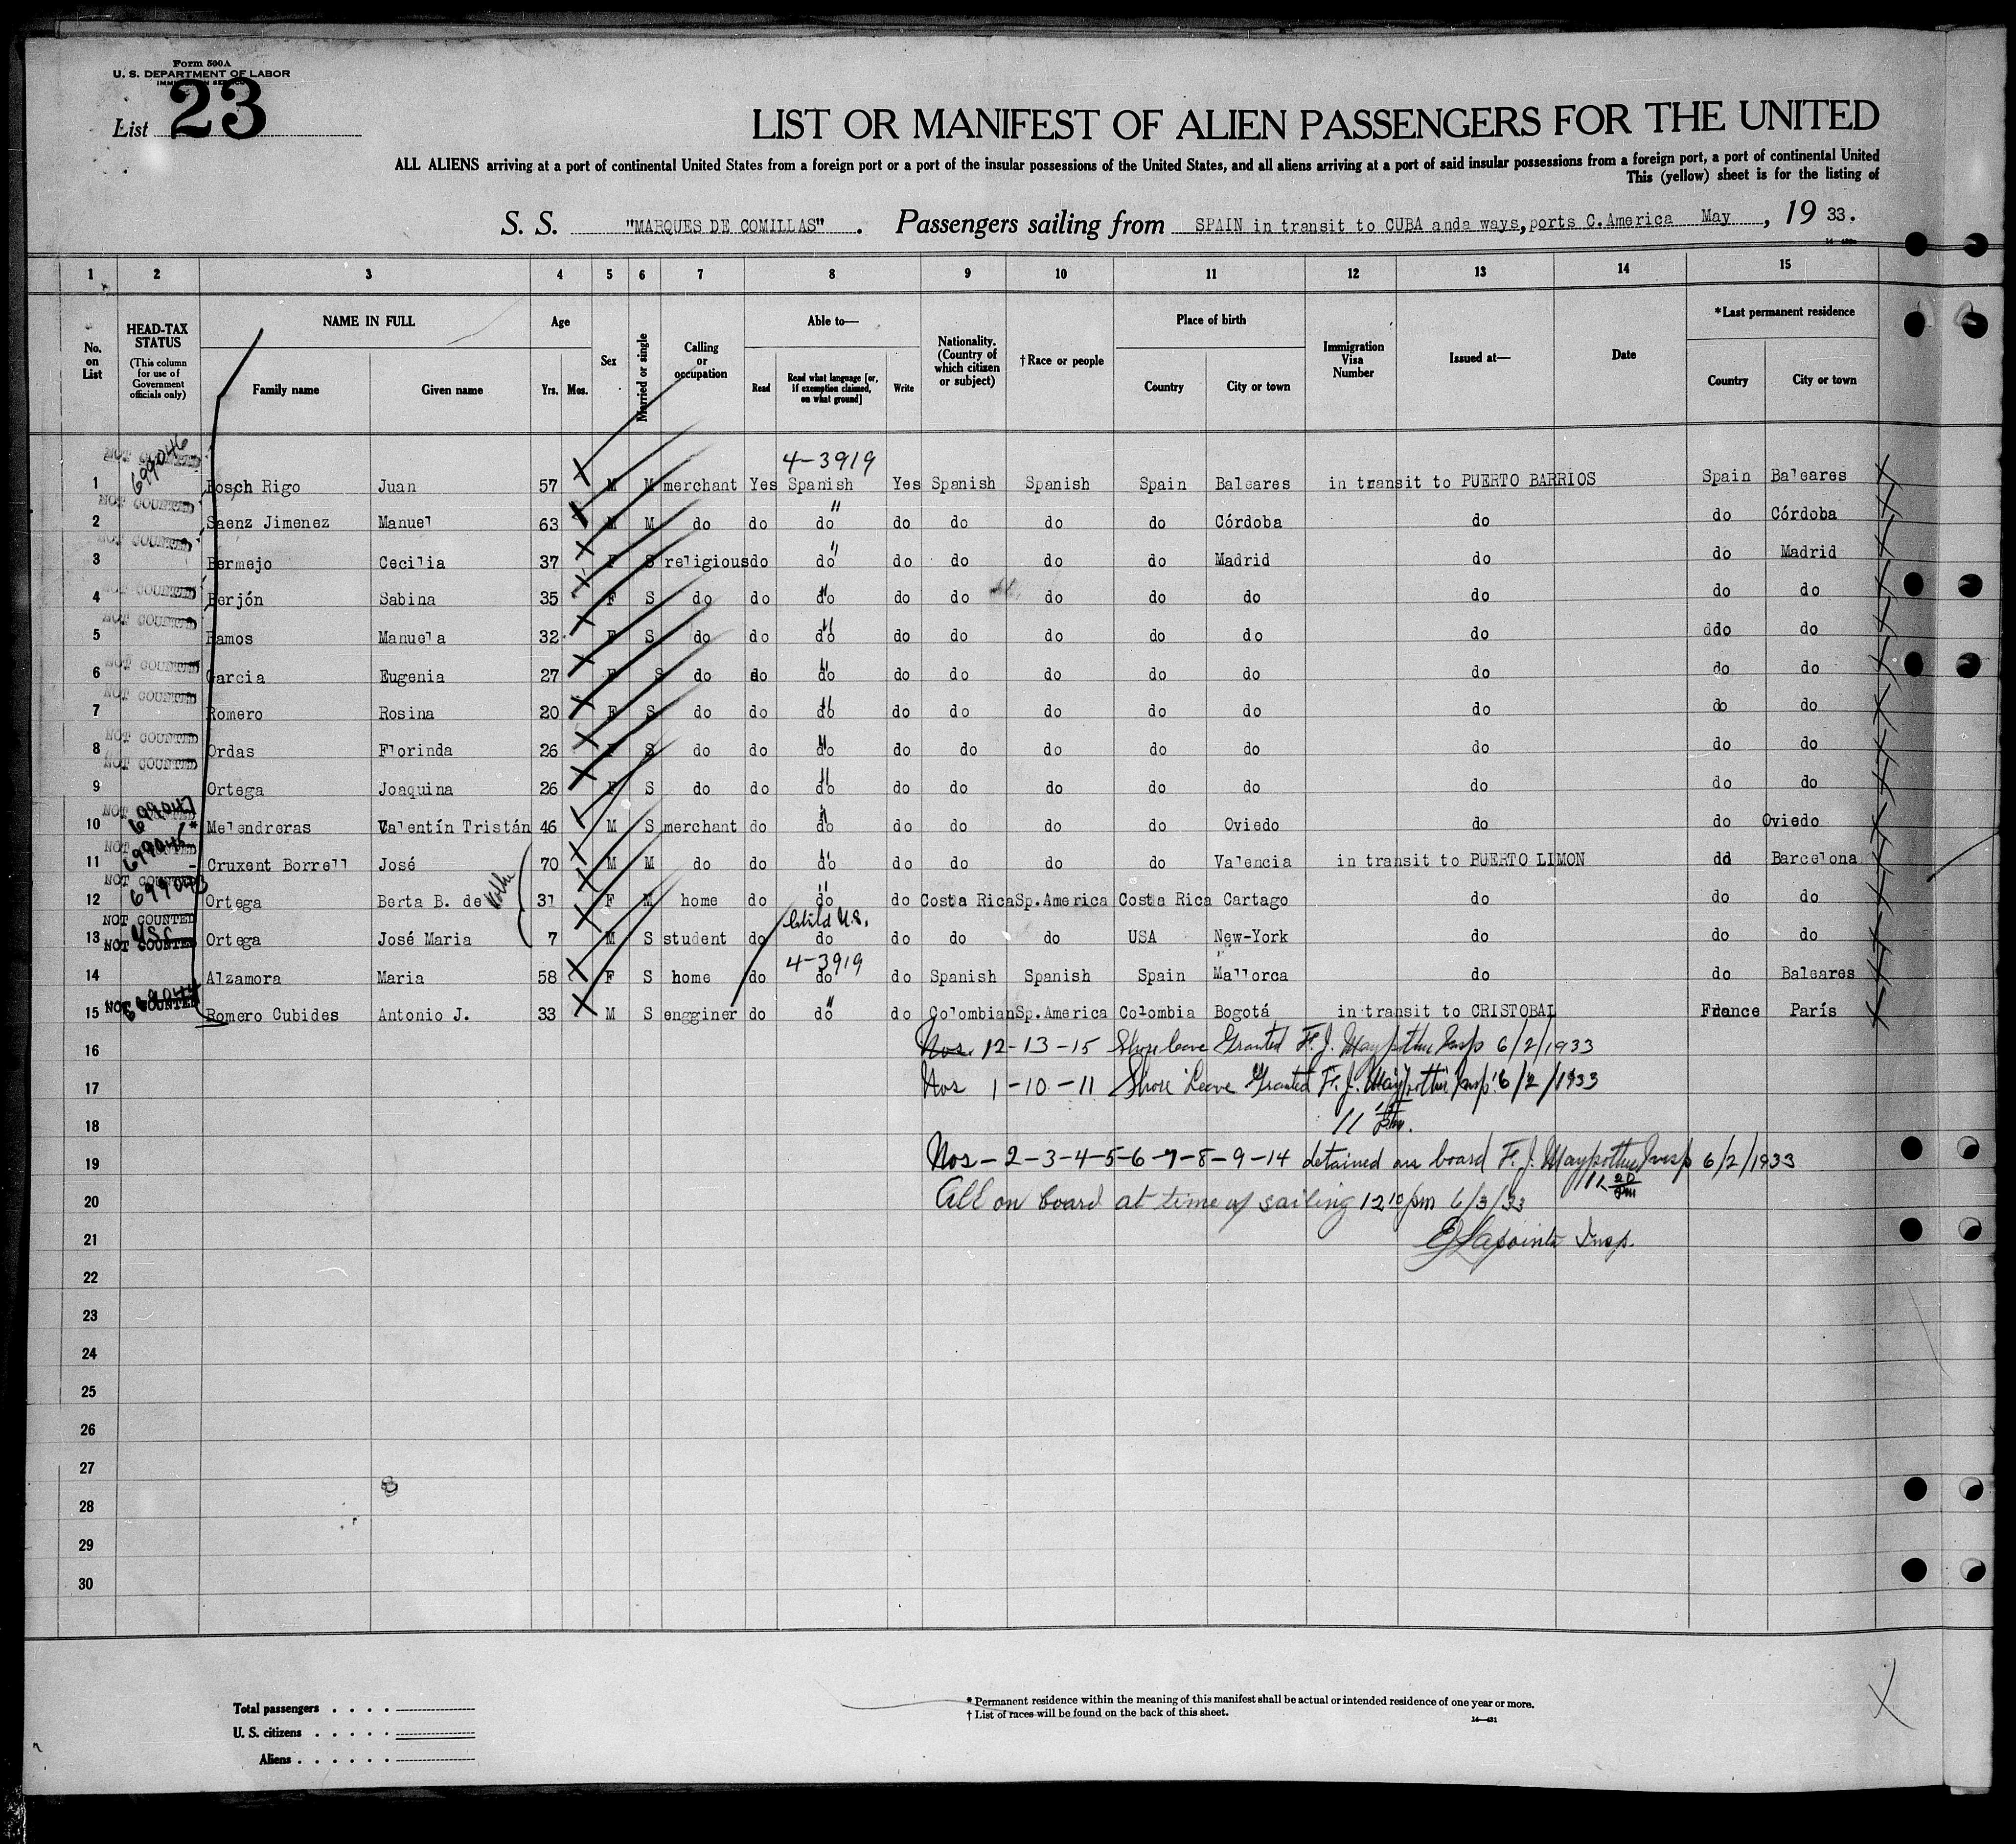 Form 500A
U. S. DEPARTMENT OF LABOR
List 23
LIST OR MANIFEST OF ALIEN PASSENGERS FOR THE UNITED
ALL ALIENS arriving at a port of continental United States from a foreign port or a port of the insular possessions of the United States, and all aliens arriving at a port of said insular possessions from a foreign port, a port of continental United
This (yellow) sheet is for the listing of
S. S. "MARQUES DE COMILLAS". Passengers sailing from SPAIN in transit to CUBA anda ways, ports C. America May, 19 33.
1 2 3 4 5 6 7 8 9 10 11 12 13 14 15
No. on List
HEAD-TAX STATUS (This column for use of Government officials only)
NAME IN FULL Family name Given name
Age Yrs. Mos.
Sex
Married or single
Calling or occupation
Able to— Read Read what language [or, if exemption claimed, on what ground] Write
Nationality. (Country of which citizen or subject)
†Race or people
Place of birth Country City or town
Immigration Visa Number
Issued at—
Date
*Last permanent residence Country City or town
NOT COUNTED 699046 4-3919
1 Bosch Rigo Juan 57 M M merchant Yes Spanish Yes Spanish Spanish Spain Baleares in transit to PUERTO BARRIOS Spain Baleares
NOT COUNTED
2 Saenz Jimenez Manuel 63 M M do do do " do do do do Córdoba do do Córdoba
NOT COUNTED
3 Bermejo Cecilia 37 F S religious do do " do do do do Madrid do do Madrid
NOT COUNTED
4 Berjón Sabina 35 F S do do do " do do do do do do do do
NOT COUNTED
5 Ramos Manuela 32 F S do do do " do do do do do do ddo do
NOT COUNTED
6 Garcia Eugenia 27 F S do do do " do do do do do do do do
NOT COUNTED
7 Romero Rosina 20 F S do do do " do do do do do do do do
NOT COUNTED
8 Ordas Florinda 26 F S do do do " do do do do do do do do
NOT COUNTED
9 Ortega Joaquina 26 F S do do do " do do do do do do do do
NOT COUNTED 699047
10 *Melendreras Valentín Tristán 46 M S merchant do do " do do do do Oviedo do do Oviedo
NOT COUNTED 699045
11 Cruxent Borrell José 70 M M do do do " do do do do Valencia in transit to PUERTO LIMON dd Barcelona
NOT COUNTED 699043
12 Ortega Berta B. de 31 F M home do do " do Costa Rica Sp.America Costa Rica Cartago do do do
NOT COUNTED USC Child U.S.
13 NOT COUNTED Ortega José Maria 7 M S student do do do do do USA New-York do do do
4-3919
14 Alzamora Maria 58 F S home do do do Spanish Spanish Spain Mallorca do do Baleares
15 NOT COUNTED Romero Cubides Antonio J. 33 M S engginer do do " do Colombian Sp.America Colombia Bogotá in transit to CRISTOBAL France París
16 Nos. 12-13-15 Shore leave Granted F. J. Maypother Insp 6/2/1933
17 Nos 1-10-11 Shore Leave Granted F. J. Maypother Insp 6/2/1933
18 11 15 pm.
19 Nos-2-3-4-5-6-7-8-9-14 detained on board F. J. Maypother Insp 6/2/1933
11 20 pm
20 All on board at time of sailing 12 10 pm 6/3/33
21 E Lapointe Insp.
22
23
24
25
26
27
28
29
30
Total passengers . . . .
U. S. citizens . . . . .
Aliens . . . . . .
* Permanent residence within the meaning of this manifest shall be actual or intended residence of one year or more.
† List of races will be found on the back of this sheet.
14—431